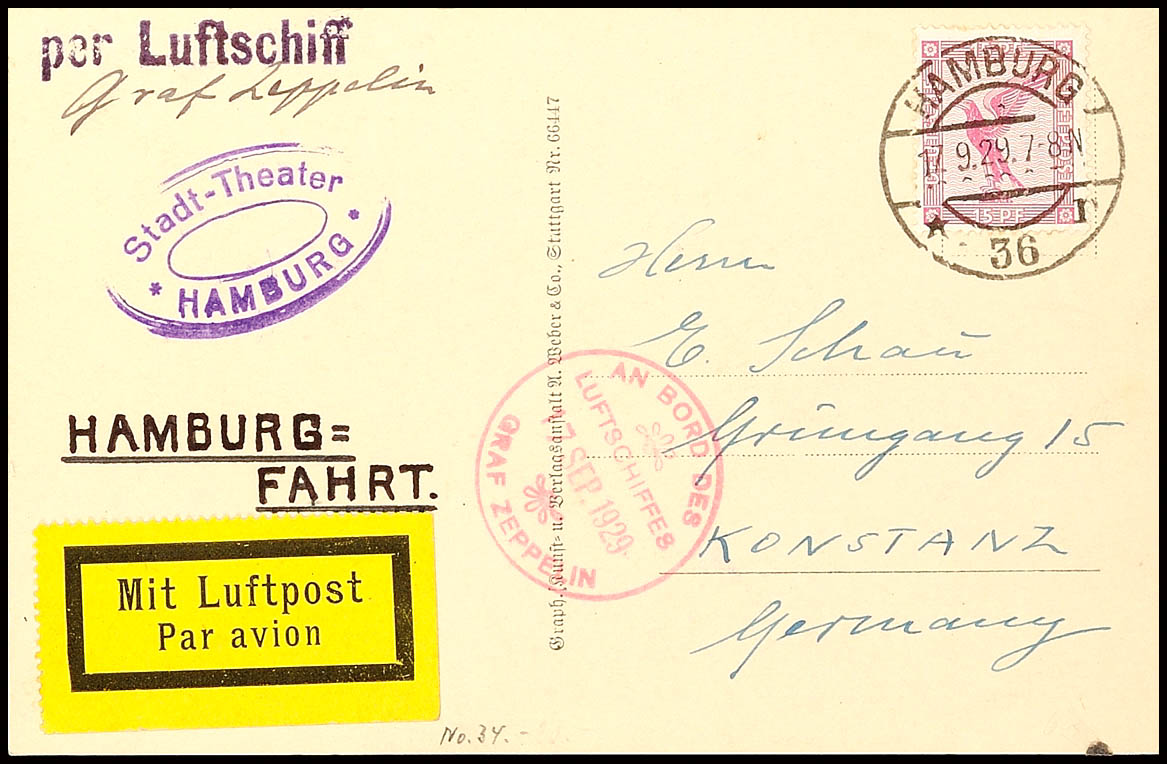 per Luftschiff
Graf Zeppelin
Stadt-Theater
* HAMBURG *
HAMBURG=
FAHRT.
Mit Luftpost
Par avion
No. 34.-
Graph. Kunst= u. Verlagsanstalt A. Weber & Co., Stuttgart Nr. 66447
AN BORD DES
LUFTSCHIFFES
17. SEP. 1929
GRAF ZEPPELIN
HAMBURG
17.9.29.7-8N
* 36 r
15 PF
Herrn
E. Schau
Grüngang 15
KONSTANZ
Germany